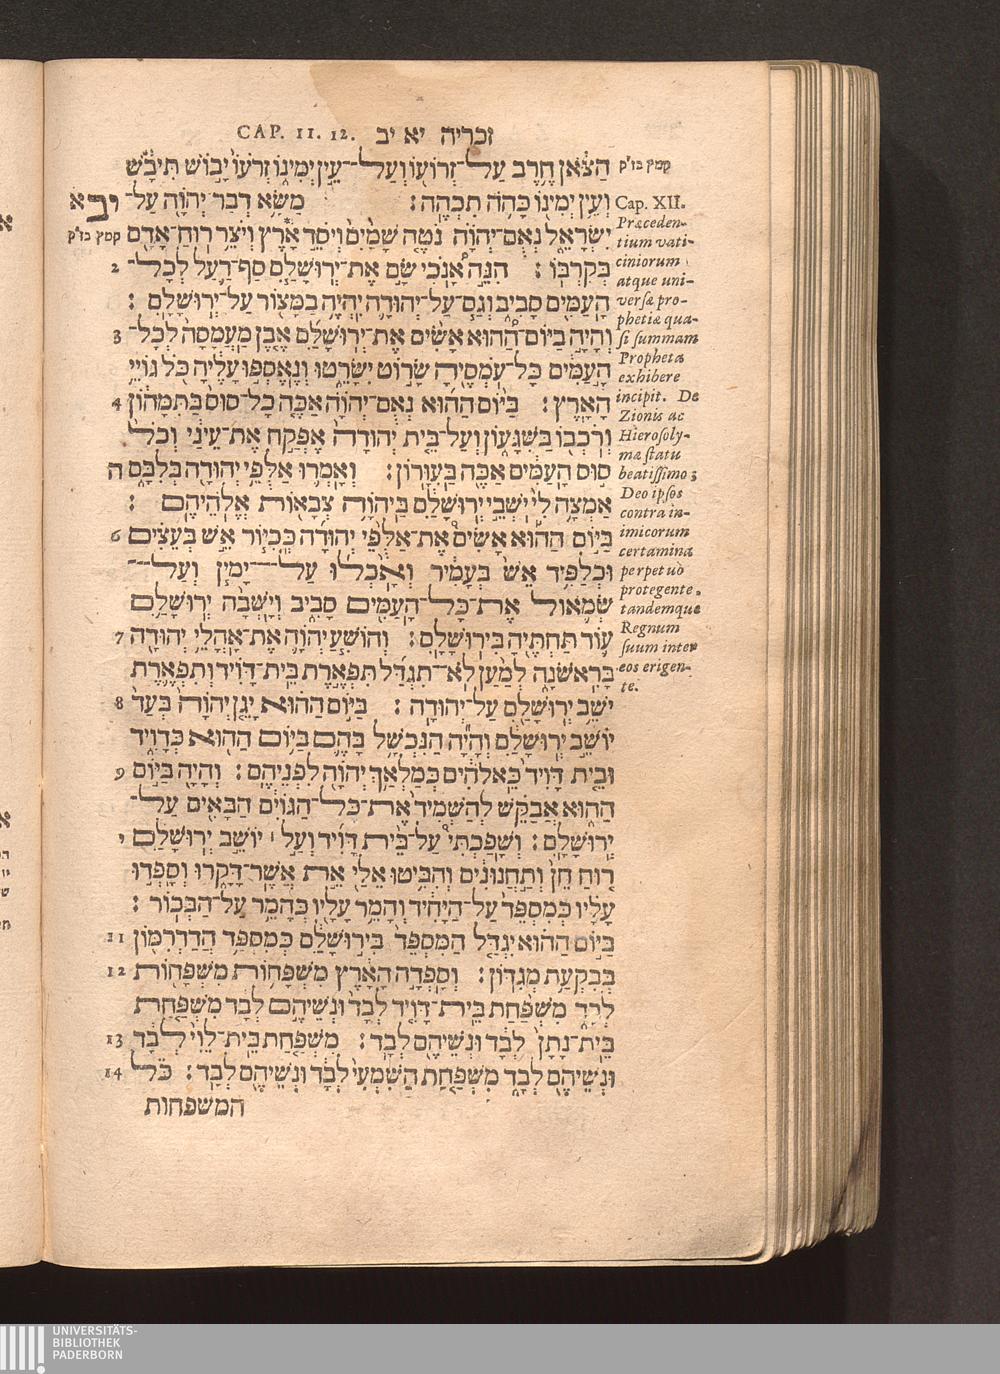 CAP. 11. 12. זכריה יא יב
הַצֹּאן חֶרֶב עַל־זְרוֹעוֹ וְעַל־עֵין יְמִינוֹ זְרֹעוֹ יָבוֹשׁ תִּיבָשׁ
קמץ בז״ק
וְעֵין יְמִינוֹ כָּהֹה תִכְהֶה׃ מַשָּׂא דְבַר־יְהוָה עַל־
יב א
יִשְׂרָאֵל נְאֻם־יְהוָה נֹטֶה שָׁמַיִם וְיֹסֵד אָרֶץ וְיֹצֵר רוּחַ־אָדָם
קמץ בז״ק
בְּקִרְבּוֹ׃ הִנֵּה אָנֹכִי שָׂם אֶת־יְרוּשָׁלִַם סַף־רַעַל לְכָל־ 2
הָעַמִּים סָבִיב וְגַם עַל־יְהוּדָה יִהְיֶה בַמָּצוֹר עַל־יְרוּשָׁלִָם׃
וְהָיָה בַיּוֹם־הַהוּא אָשִׂים אֶת־יְרוּשָׁלִַם אֶבֶן מַעֲמָסָה לְכָל־ 3
הָעַמִּים כָּל־עֹמְסֶיהָ שָׂרוֹט יִשָּׂרֵטוּ וְנֶאֶסְפוּ עָלֶיהָ כֹּל גּוֹיֵי
הָאָרֶץ׃ בַּיּוֹם הַהוּא נְאֻם־יְהוָה אַכֶּה כָל־סוּס בַּתִּמָּהוֹן 4
וְרֹכְבוֹ בַּשִּׁגָּעוֹן וְעַל־בֵּית יְהוּדָה אֶפְקַח אֶת־עֵינַי וְכֹל
סוּס הָעַמִּים אַכֶּה בַּעִוָּרוֹן׃ וְאָמְרוּ אַלֻּפֵי יְהוּדָה בְּלִבָּם ה
אַמְצָה לִי יֹשְׁבֵי יְרוּשָׁלִַם בַּיהוָה צְבָאוֹת אֱלֹהֵיהֶם׃
בַּיּוֹם הַהוּא אָשִׂים אֶת־אַלֻּפֵי יְהוּדָה כְּכִיּוֹר אֵשׁ בְּעֵצִים 6
וּכְלַפִּיד אֵשׁ בְּעָמִיר וְאָכְלוּ עַל־יָמִין וְעַל־
שְׂמֹאול אֶת־כָּל־הָעַמִּים סָבִיב וְיָשְׁבָה יְרוּשָׁלִַם
עוֹד תַּחְתֶּיהָ בִּירוּשָׁלִָם׃ וְהוֹשִׁעַ יְהוָה אֶת־אָהֳלֵי יְהוּדָה 7
בָּרִאשֹׁנָה לְמַעַן לֹא־תִגְדַּל תִּפְאֶרֶת בֵּית־דָּוִיד וְתִפְאֶרֶת
יֹשֵׁב יְרוּשָׁלִַם עַל־יְהוּדָה׃ בַּיּוֹם הַהוּא יָגֵן יְהוָה בְּעַד 8
יוֹשֵׁב יְרוּשָׁלִַם וְהָיָה הַנִּכְשָׁל בָּהֶם בַּיּוֹם הַהוּא כְּדָוִיד
וּבֵית דָּוִיד כֵּאלֹהִים כְּמַלְאַךְ יְהוָה לִפְנֵיהֶם׃ וְהָיָה בַּיּוֹם 9
הַהוּא אֲבַקֵּשׁ לְהַשְׁמִיד אֶת־כָּל־הַגּוֹיִם הַבָּאִים עַל־
יְרוּשָׁלִָם׃ וְשָׁפַכְתִּי עַל־בֵּית דָּוִיד וְעַל ׀ יוֹשֵׁב יְרוּשָׁלִַם י
רוּחַ חֵן וְתַחֲנוּנִים וְהִבִּיטוּ אֵלַי אֵת אֲשֶׁר־דָּקָרוּ וְסָפְדוּ
עָלָיו כְּמִסְפֵּד עַל־הַיָּחִיד וְהָמֵר עָלָיו כְּהָמֵר עַל־הַבְּכוֹר׃
בַּיּוֹם הַהוּא יִגְדַּל הַמִּסְפֵּד בִּירוּשָׁלִַם כְּמִסְפַּד הֲדַדְרִמּוֹן 11
בְּבִקְעַת מְגִדּוֹן׃ וְסָפְדָה הָאָרֶץ מִשְׁפָּחוֹת מִשְׁפָּחוֹת 12
לְבָד מִשְׁפַּחַת בֵּית־דָּוִיד לְבָד וּנְשֵׁיהֶם לְבָד מִשְׁפַּחַת
בֵּית־נָתָן לְבָד וּנְשֵׁיהֶם לְבָד׃ מִשְׁפַּחַת בֵּית־לֵוִי לְבָד 13
וּנְשֵׁיהֶם לְבָד מִשְׁפַּחַת הַשִּׁמְעִי לְבָד וּנְשֵׁיהֶם לְבָד׃ כֹּל 14
המשפחות
Cap. XII.
Præceden-
tium vati-
ciniorum
atque uni-
versæ pro-
phetiæ qua-
si summam
Propheta
exhibere
incipit. De
Zionis ac
Hierosoly-
mæ statu
beatissimo;
Deo ipsos
contra in-
imicorum
certamina
perpetuò
protegente,
tandemque
Regnum
suum inter
eos erigen-
te.
UNIVERSITÄTS-
BIBLIOTHEK
PADERBORN